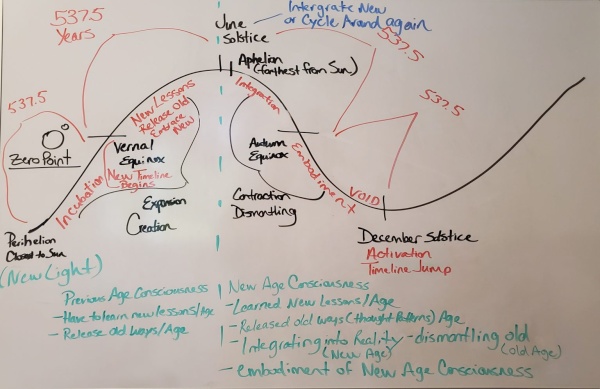 537.5
Years
June
Solstice
Intergrate New
or Cycle Around again
537.5
537.5
537.5
Aphelion
(farthest from Sun)
New Lessons
Release Old
Embrace
New
Integration
Zero Point
Vernal
Equinox
New Timeline
Begins
Incubation
Autumn
Equinox
Embodiment
VOID
Expansion
Creation
Contraction
Dismantling
Perihelion
Closest to Sun
(New Light)
December Solstice
Activation
Timeline Jump
Previous Age Consciousness
- Have to learn new lessons/Age
- Release old ways/Age
New Age Consciousness
- Learned New Lessons/Age
- Released old ways (thought Patterns) Age
- Integrating into Reality - dismantling old
(New Age) (old Age)
- embodiment of New Age Consciousness